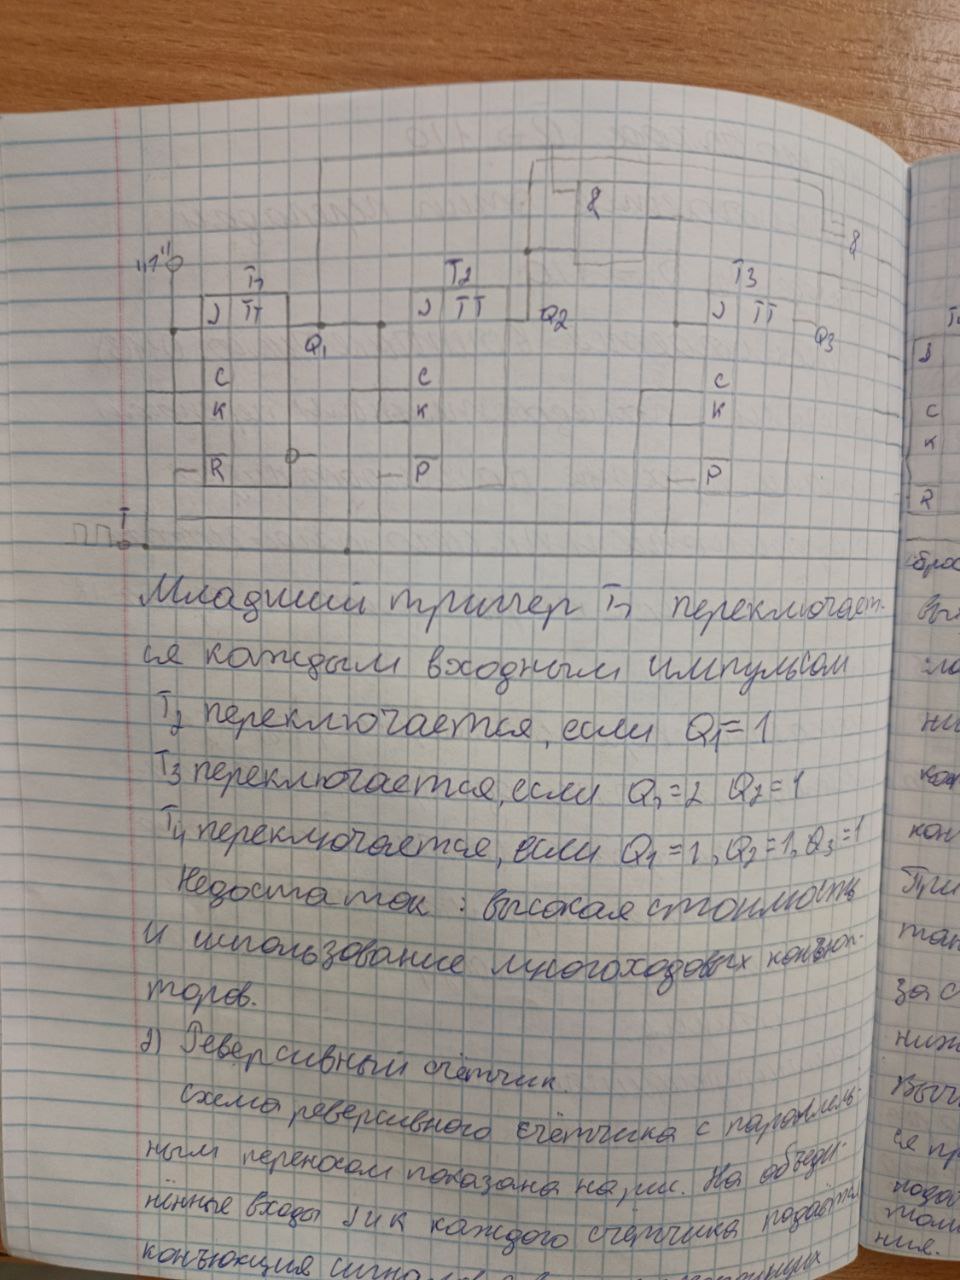 &
"1"
&
T1
T2
T3
J TT
J TT
J TT
Q1
Q2
Q3
C
C
C
K
K
K
R
P
P
T
Младший триггер T1 переключает-
ся каждым входным импульсом
T2 переключается, если Q1=1
T3 переключается, если Q1=1 Q2=1
T4 переключается, если Q1=1, Q2=1, Q3=1
Недостаток: высокая стоимость
и использование многоходовых конъюн-
торов.
2) Реверсивный счётчик.
Схема реверсивного счётчика с параллель-
ным переносом показана на рис. На объеди-
нённые входы J и K каждого счётчика подаётся
J
C
K
R
сброс